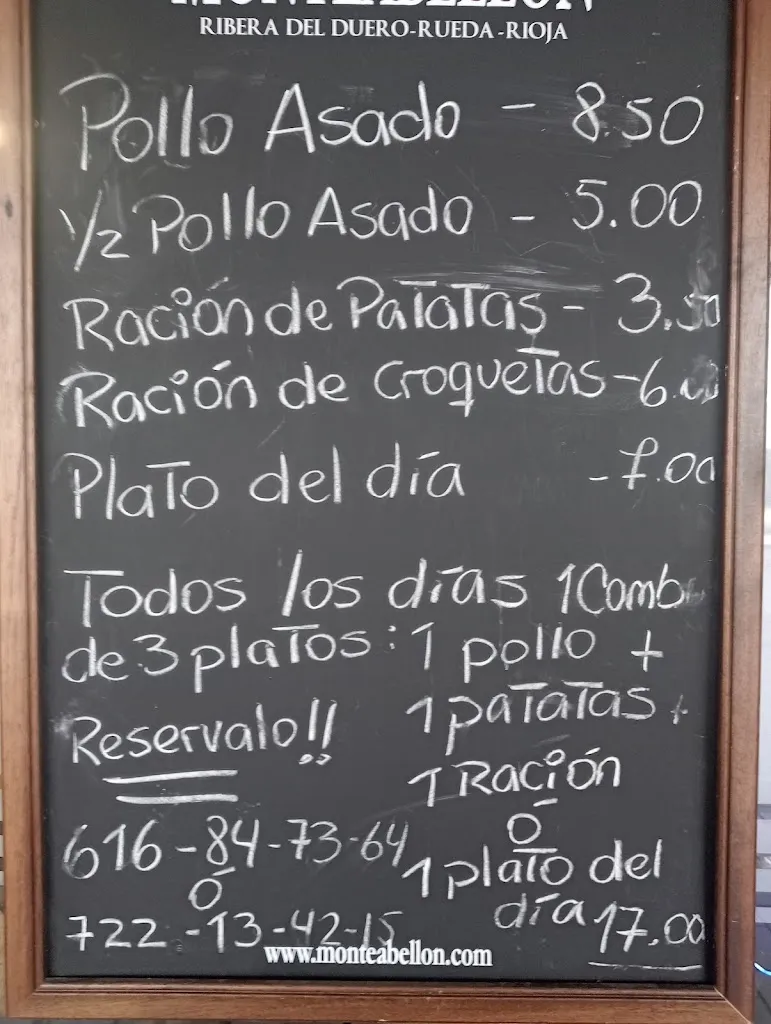 MONTEABELLÓN
RIBERA DEL DUERO-RUEDA-RIOJA
Pollo Asado - 8.50
1/2 Pollo Asado - 5.00
Ración de Patatas - 3.50
Ración de Croquetas - 6.00
Plato del día - 7.00
Todos los días 1 Combo
de 3 platos: 1 pollo +
1 patatas +
Reservalo!!
1 Ración
ó
1 plato del
día 17.00
616-84-73-64
ó
722-13-42-15
www.monteabellon.com